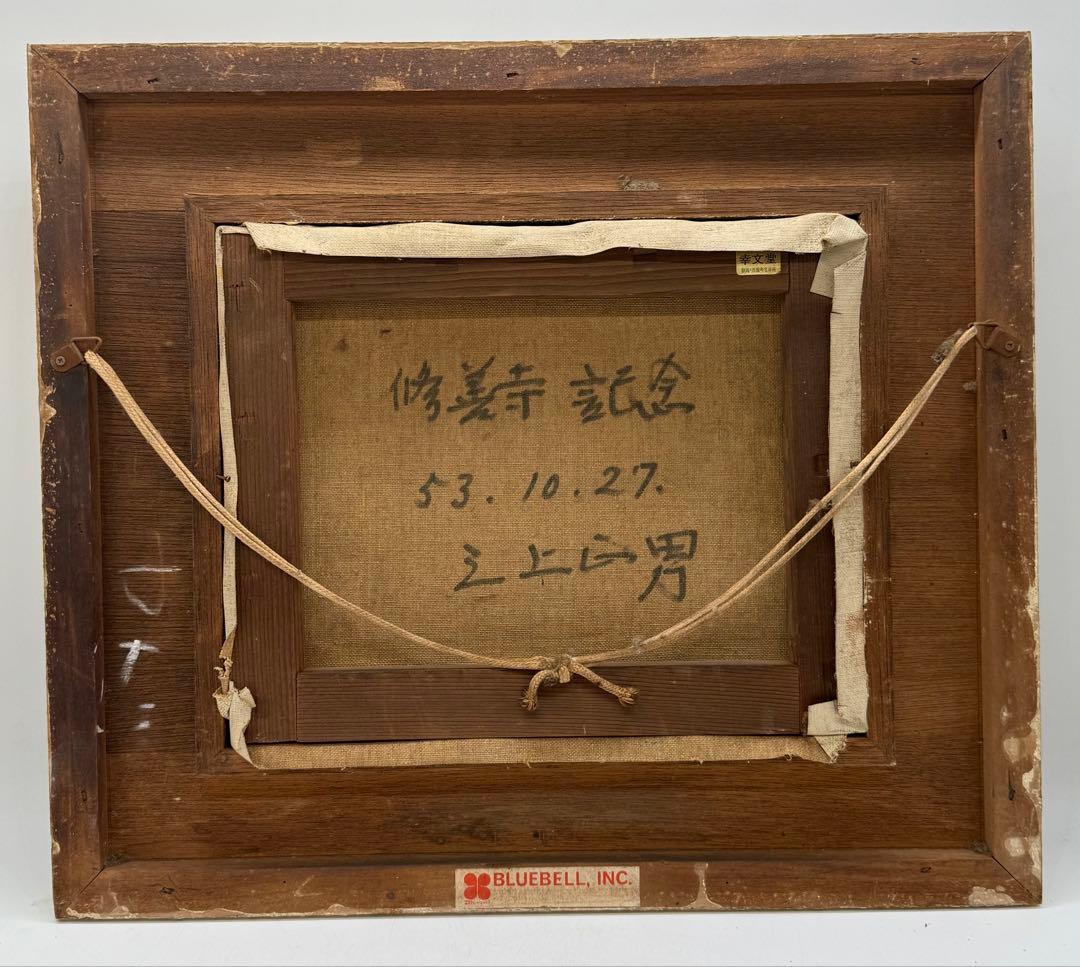 幸文堂
修善寺 記念
53.10.27.
三上正男
BLUEBELL, INC.